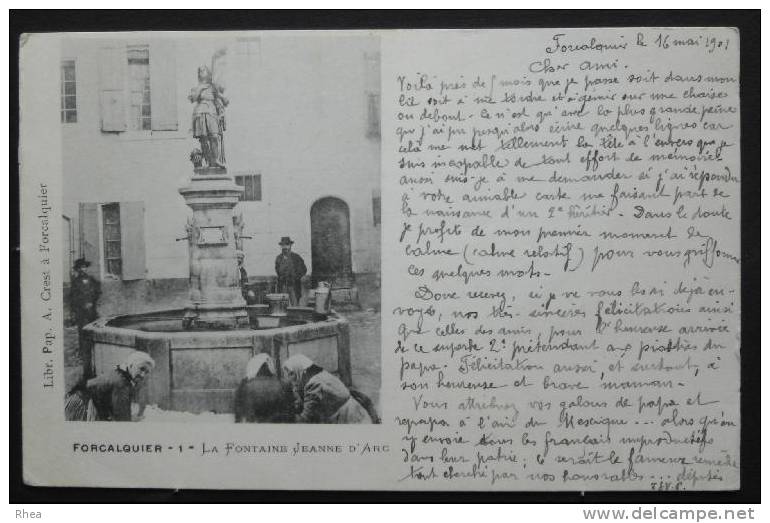 Forcalquier le 16 mai 1901
Cher ami.
Voilà près de 5 mois que je passe soit dans mon
lit soit à me tordre et à gémir sur une chaise
ou debout. Ce n'est qu'avec la plus grande peine
que j'ai pu jusqu'alors écrire quelques lignes car
celà me met tellement la tête à l'envers que je
suis incapable de tout effort de mémoire
aussi suis-je à me demander si j'ai répondu
à votre aimable carte me faisant part de
la naissance d'un 2e héritier. Dans le doute
je profite de mon premier moment de
calme (calme relatif) pour vous griffonner
ces quelques mots.
Donc recevez, si je ne vous les ai déjà en-
voyées, nos très sincères félicitations ainsi
que celles des amis, pour l'heureuse arrivée
de ce superbe 2e prétendant aux piastres du
papa. Félicitation aussi, et surtout, à
son heureuse et brave maman.
Vous attribuez vos galons de papa et
repapa à l'air du Mexique ... alors qu'on
y envoie tous les français improductifs
dans leur patrie; ce serait le fameux remède
tant cherché par nos honorables ... députés
T.S.V.P.
Libr. Pap. A. Crest à Forcalquier
FORCALQUIER - 1 - LA FONTAINE JEANNE D'ARC
http://www.delcampe.net
Rhea